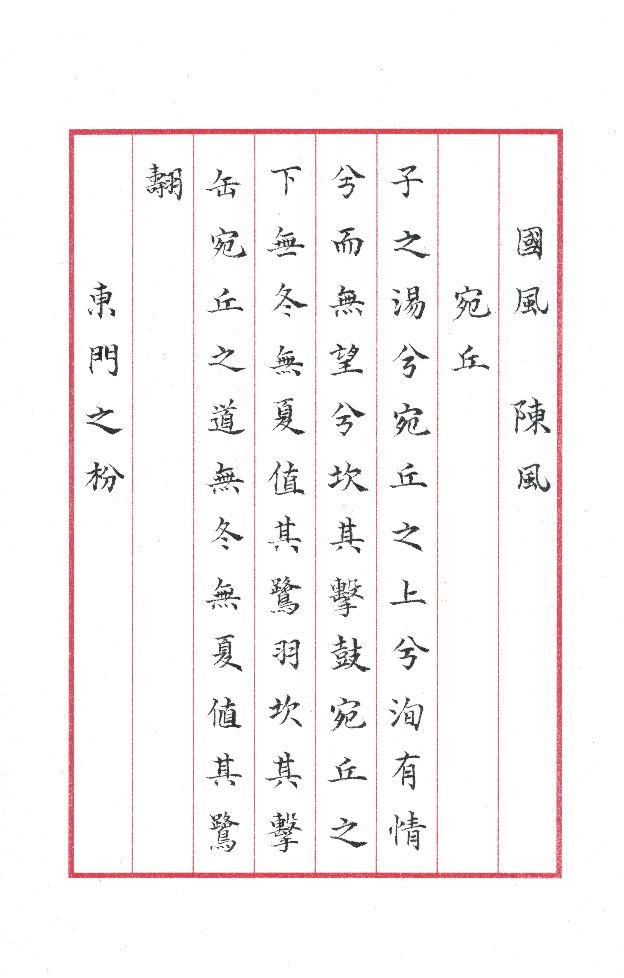 國風 陳風
宛丘
子之湯兮宛丘之上兮洵有情
兮而無望兮坎其擊鼓宛丘之
下無冬無夏值其鷺羽坎其擊
缶宛丘之道無冬無夏值其鷺
翿
東門之枌